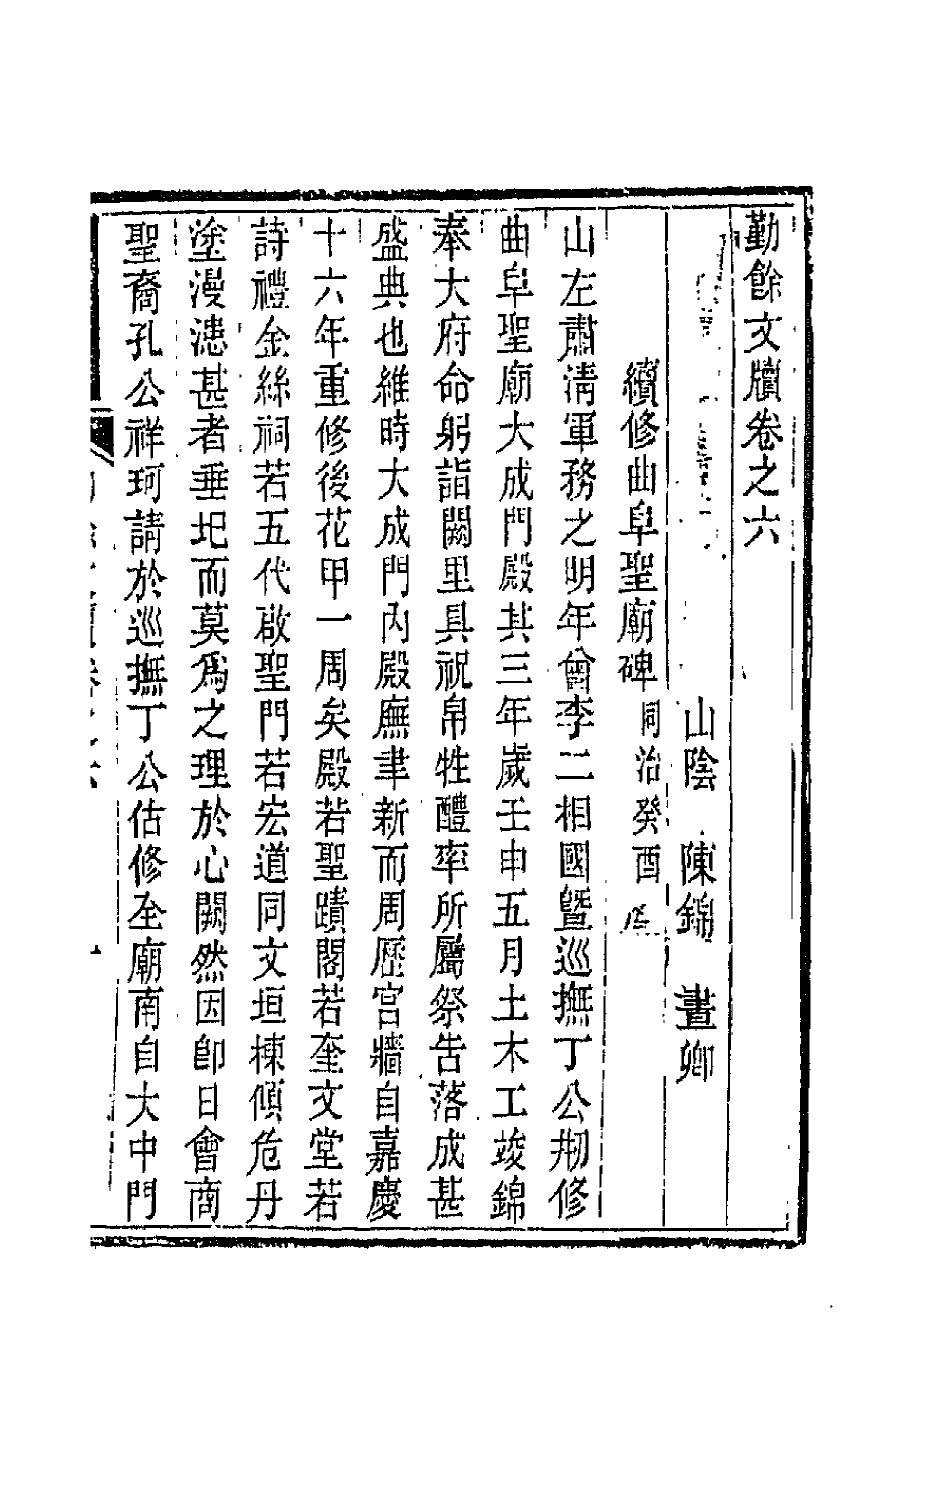 勤餘文牘卷之六
山陰 陳錦 晝卿
續修曲阜聖廟碑 同治癸酉
山左肅清軍務之明年曾李二相國曁巡撫丁公刱修
曲阜聖廟大成門殿其三年歲壬申五月土木工竣錦
奉大府命躬詣闕里具祝帛牲醴率所屬祭吿落成甚
盛典也維時大成門內殿廡聿新而周歷宮牆自嘉慶
十六年重修後花甲一周矣殿若聖蹟閣若奎文堂若
詩禮金絲祠若五代啟聖門若宏道同文垣棟傾危丹
塗漫漶甚者垂圮而莫爲之理於心闕然因卽日會商
聖裔孔公祥珂請於巡撫丁公估修全廟南自大中門